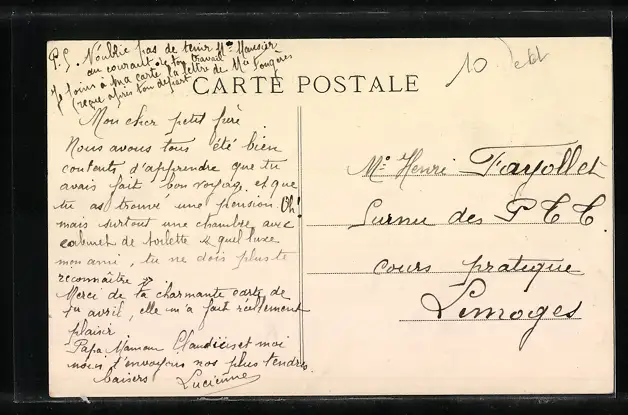 P.S. N'oublie pas de tenir Mr Mansier
au courant de ton travail
Je joins à ma carte la lettre de Mlle Fougères
(reçue après ton départ
10
CARTE POSTALE
Mon cher petit frère
Nous avons tous été bien
contents d'apprendre que tu
avais fait bon voyage et que
tu as trouvé une pension. Oh!
mais surtout une chambre avec
cabinet de toilette "quel luxe
mon ami, tu ne dois plus te
reconnaître".
Merci de ta charmante carte de
1er avril, elle m'a fait réellement
plaisir
Papa Maman et moi
nous t'envoyons nos plus tendres
baisers Lucienne
Mr Henri Fayollet
Surnu des P T T
cours pratique
Limoges